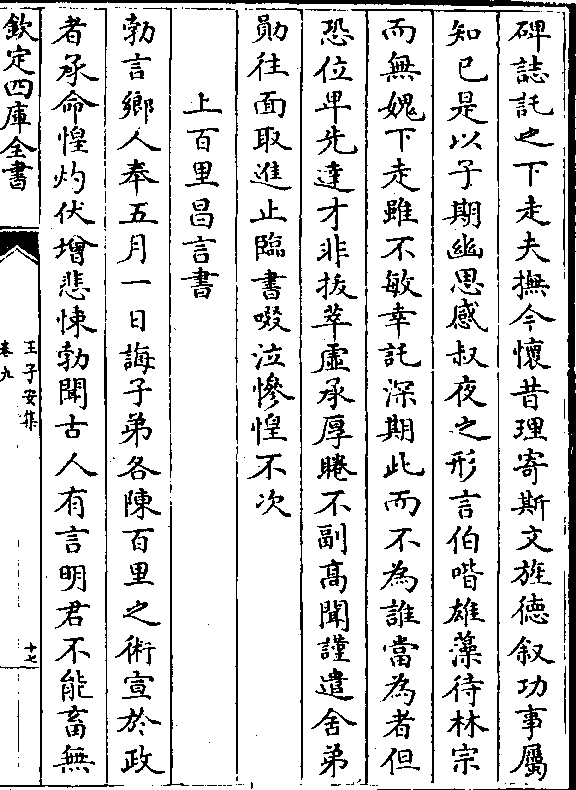 碑誌託之下走夫撫今懷昔理寄斯文旌德叙功事屬
知已是以子期幽思感叔夜之形言伯喈雄藻待林宗
而無媿下走雖不敏幸託深期此而不為誰當為者但
恐位卑先達才非拔萃虛承厚睠不副髙聞謹遣舍弟
勛往面取進止臨書啜泣慘惶不次
上百里昌言書
勃言鄉人奉五月一日誨子弟各陳百里之術宣於政
者承命惶灼伏增悲悚勃聞古人有言明君不能畜無
欽定四庫全書
王子安集
卷九
十七